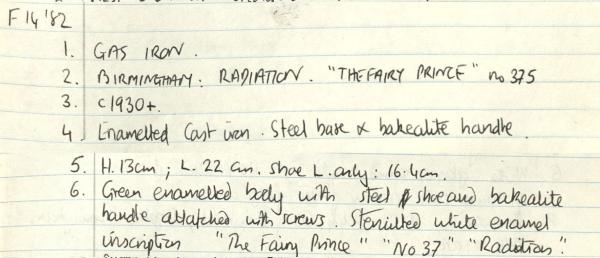 F 14 '82
1. GAS IRON.
2. BIRMINGHAM: RADIATION. "THE FAIRY PRINCE" no 375
3. c1930+.
4 Enamelled Cast iron. Steel base & bakealite handle.
5. H. 13cm; L. 22 cm. Shoe L. only: 16.4cm.
6. Green enamelled body with steel shoe and bakealite
handle attatched with screws. Stencilled white enamel
inscription "The Fairy Prince" "No 37" "Radiation".